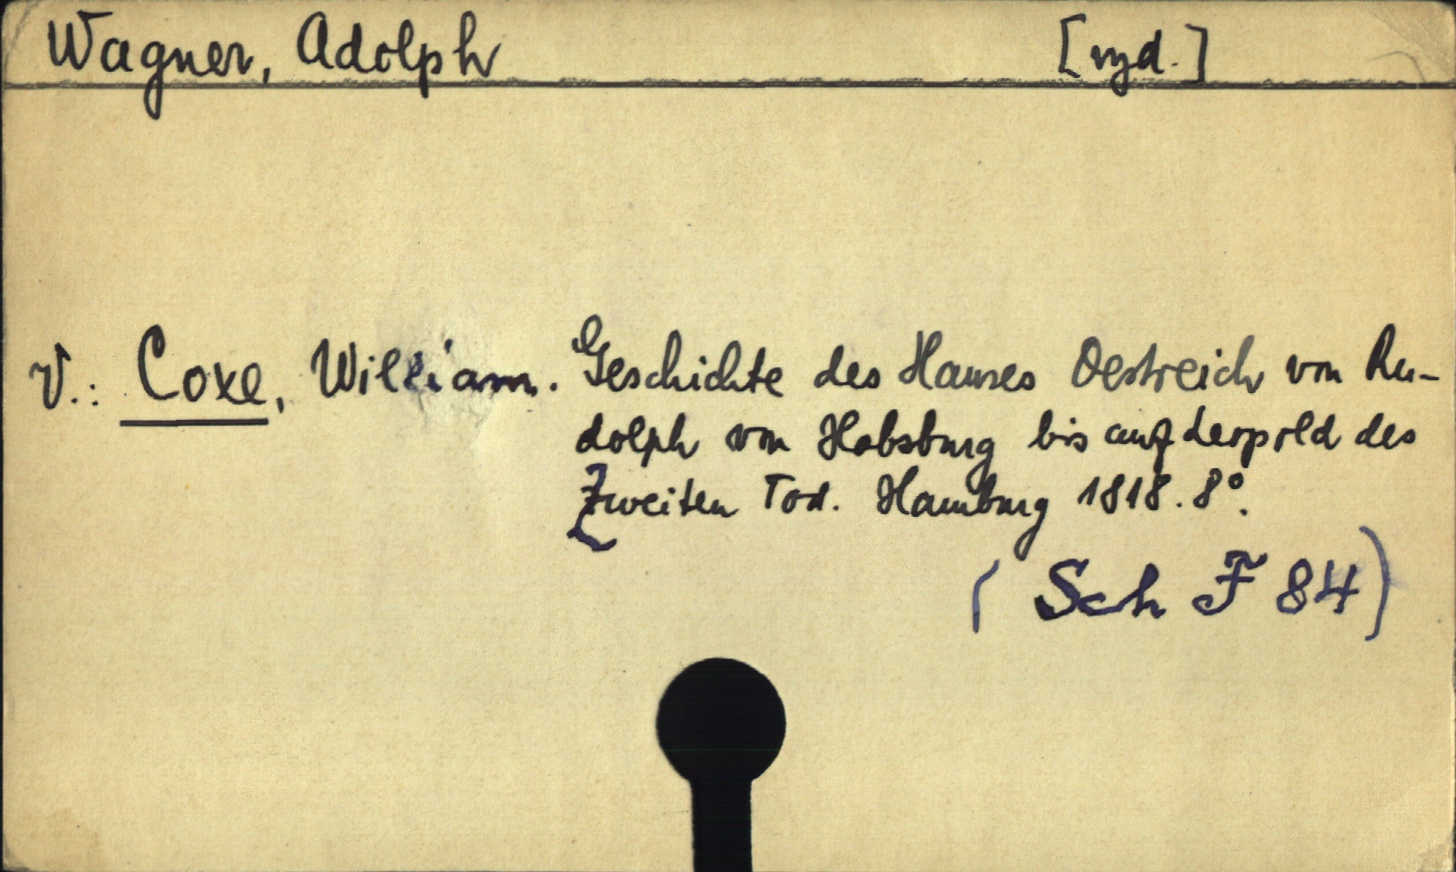 Wagner, Adolph [vyd.]
V.: Coxe, William. Geschichte des Hauses Oestreich von Ru-
dolph von Habsburg bis auf Leopold des
Zweiten Tod. Hamburg 1818. 8°.
( Sch F 84)